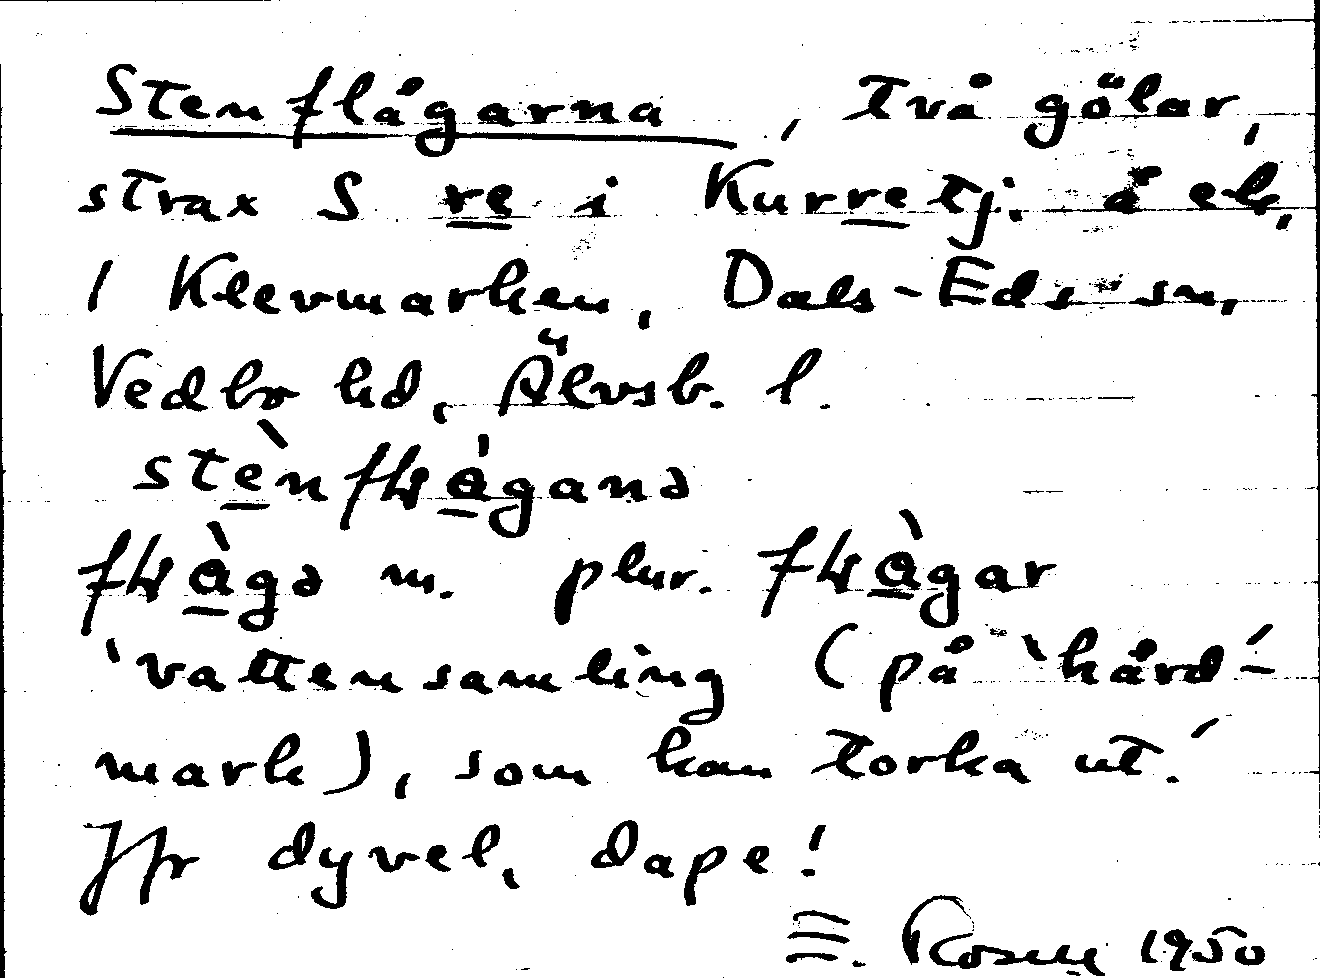 Stenflågarna, två gölar,
strax S re i Kurretj. å ek,
i Klevmarken, Dals-Eds sn,
Vedbo hd, Älvsb. l.
stènflågana
flågə m. plur. flågar
'vattensamling (på 'hård'-
mark), som kan torka ut.'
Jfr dyvel, dape!
E. Rosell 1950